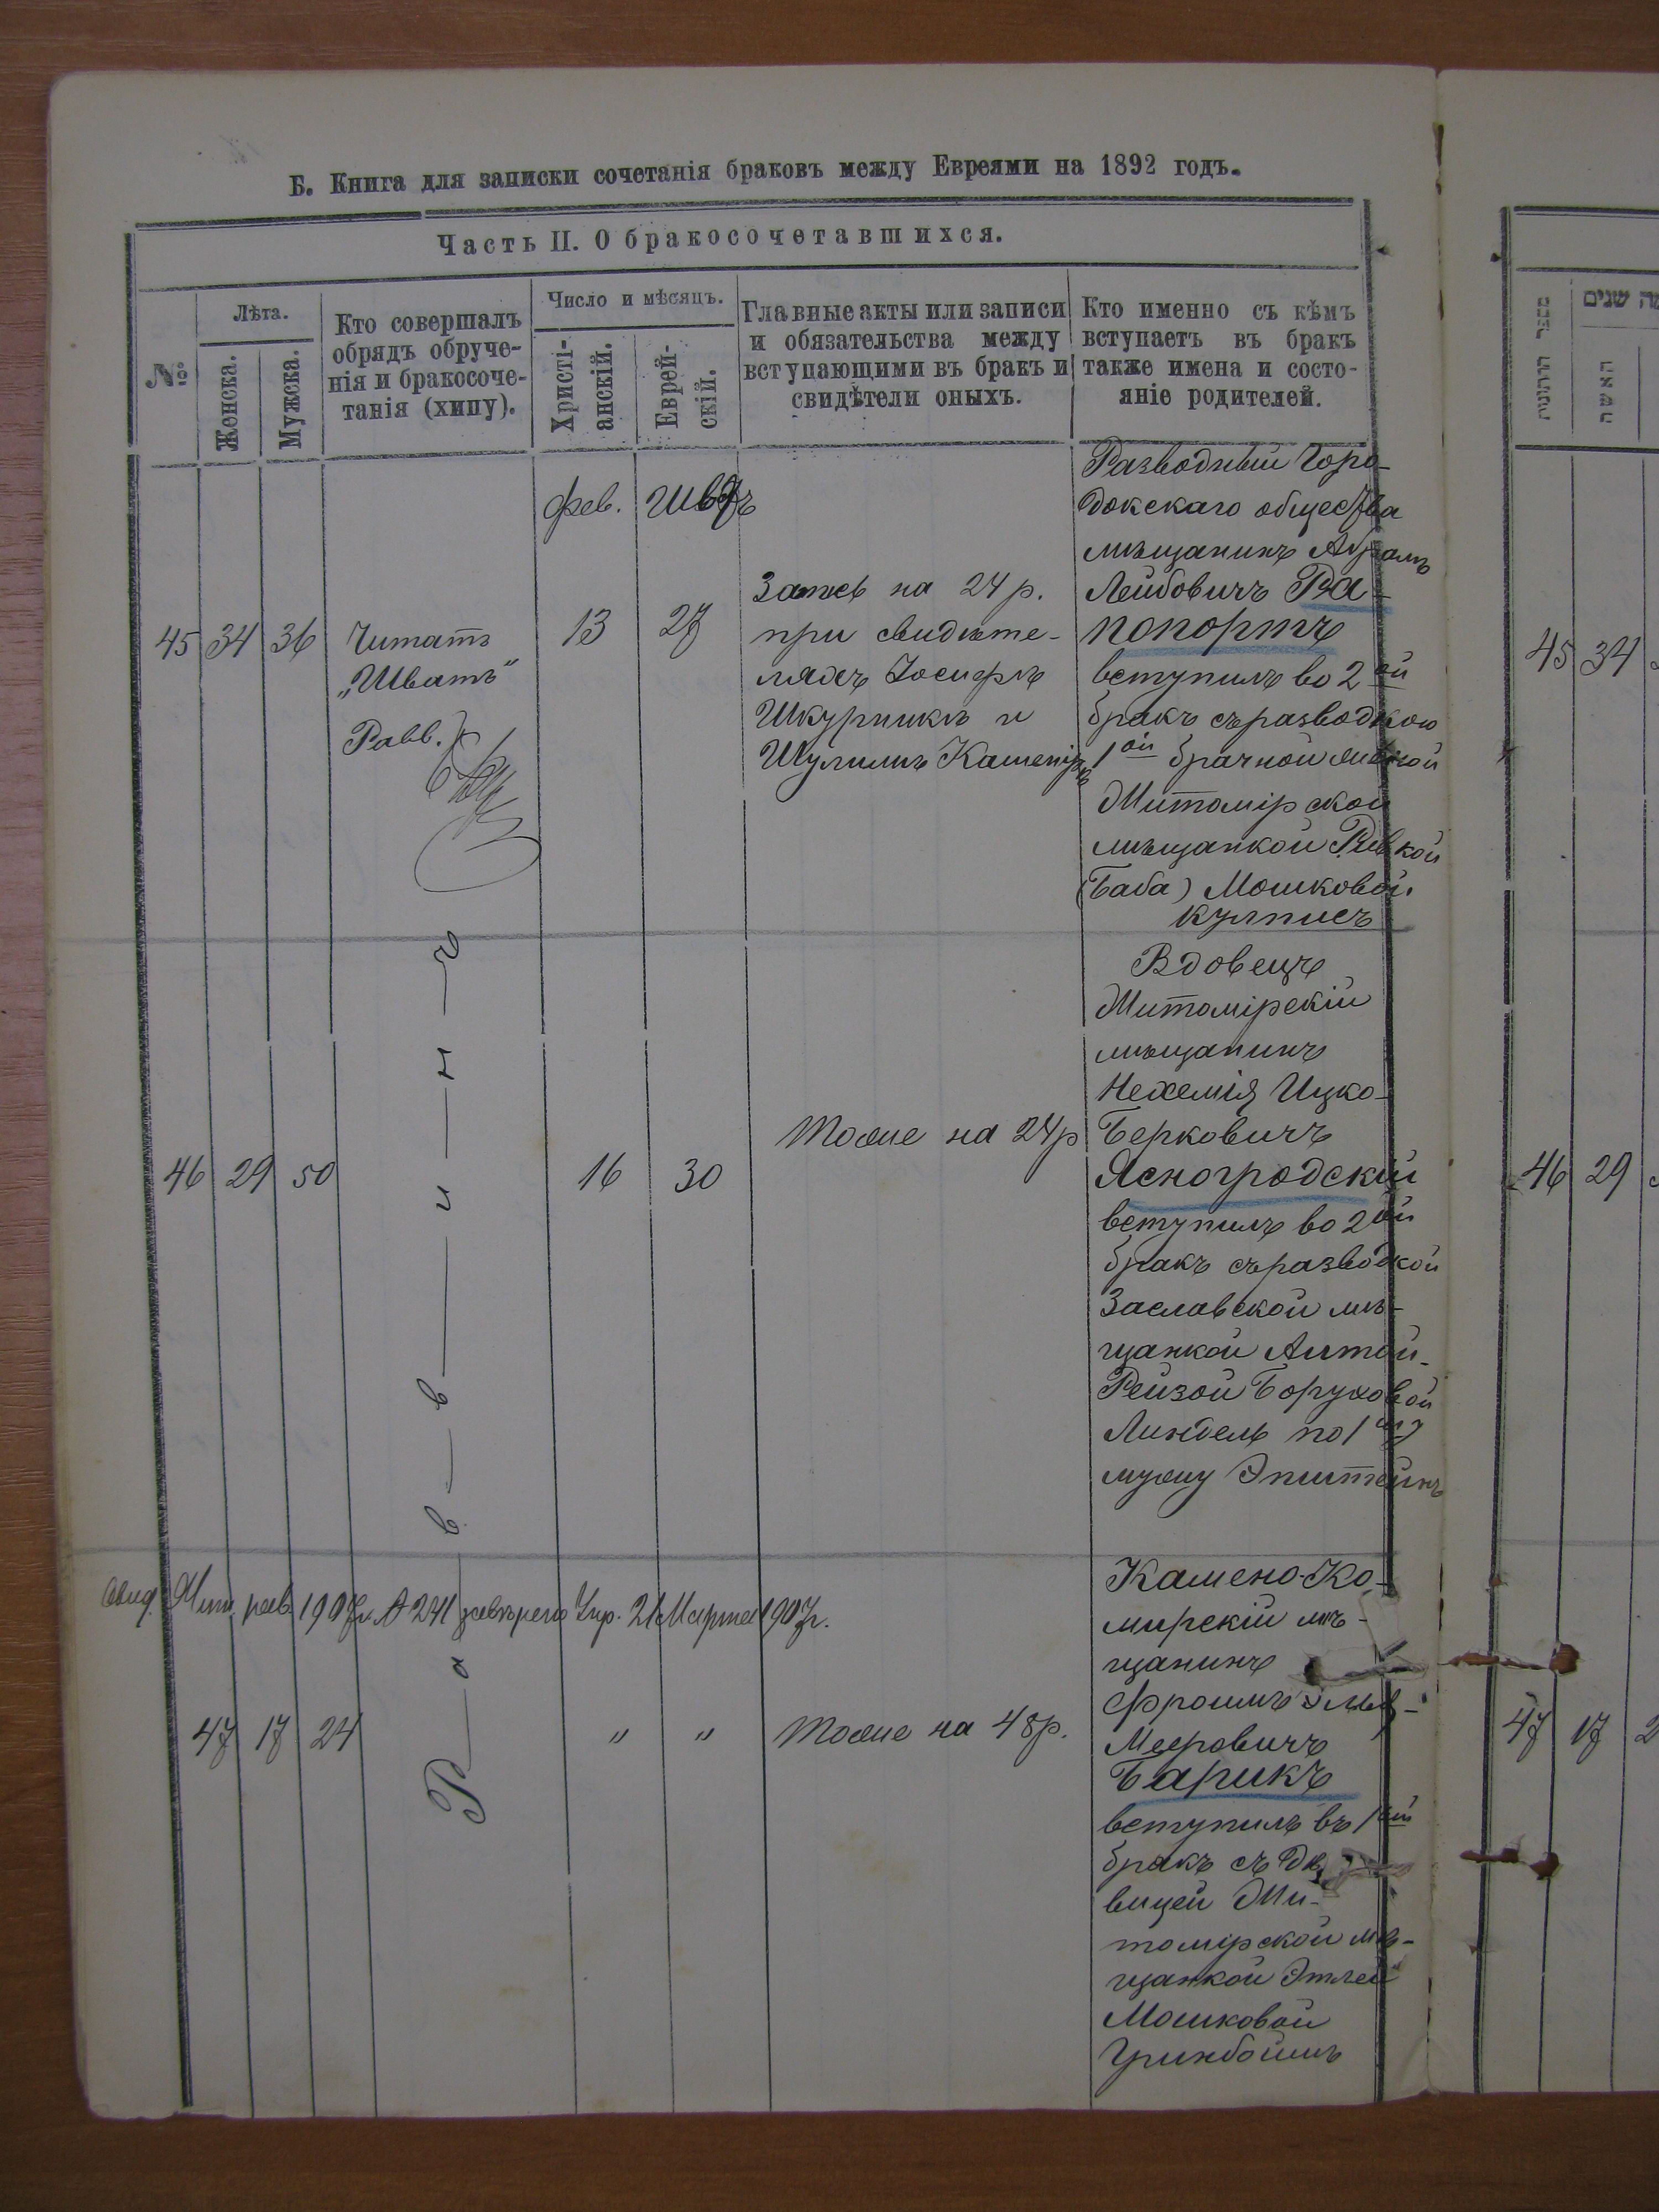 Б. Книга для записки сочетанія браковъ между Евреями на 1892 годъ.
Часть II. О бракосочетавшихся.
№
Лѣта.
Женска.
Мужска.
Кто совершалъ
обрядъ обруче-
нія и бракосоче-
танія (хипу).
Число и мѣсяцъ.
Христі-
анскій.
Еврей-
скій.
Главные акты или записи
и обязательства между
вступающими въ бракъ и
свидѣтели оныхъ.
Кто именно съ кѣмъ
вступаетъ въ бракъ
также имена и состо-
яніе родителей.
фев. Шватъ
45 34 36
Читатъ
„Шватъ“
Равв.
13 27
Запись на 24 р.
при свидѣте-
ляхъ Іосифъ
Шкурникъ и
Шулимъ
Разводный Горо-
докскаго общества
мѣщанинъ Абрамъ
Лейбовичъ Ра-
попортъ
вступилъ во 2ой
бракъ съ разводкою
1ой брачной
Житомірской
мѣщанкой Ривкой
(Баба) Мошковой
Купписъ
46 29 50
16 30
Тоже на 24 р
Вдовецъ
Житомірскій
мѣщанинъ
Нехемія Ицко-
Берковичъ
Ясногродскій
вступилъ во 2ой
бракъ съ разводкой
Заславской мѣ-
щанкой Алтой-
Рейзой Боруховой
Линдель по 1му
мужу Эпштейнъ
Раввинъ
Свид. Жит. рав. 1907г. № 241 завѣрено Упр. 21 Марта 1907г.
47 17 24
" "
Тоже на 48 р.
Камено-Ко-
мирскій мѣ-
щанинъ
Фроимъ
Мееровичъ
Барикъ
вступилъ въ 1ый
бракъ съ дѣ-
вицей Жи-
томірской мѣ-
щанкой Этлей
Мошковой
Гринбоимъ
מספר החתונות
שנים
האשה
45 34
46 29
47 17 2